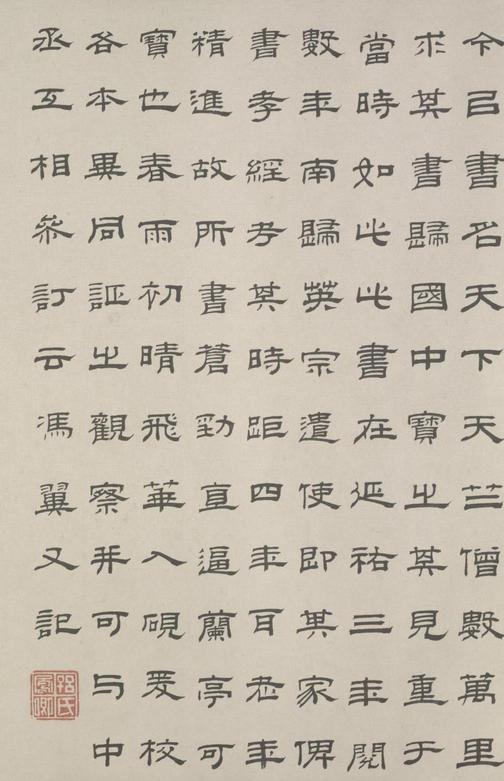 今㠯書名天下天竺僧數萬里
求其書歸國中寶之其見重于
當時如此此書在延祐三年閱
數年南歸英宗遣使即其家俾
書孝經考其時距四年耳老年
精進故所書蒼勁直逼蘭亭可
寶也春雨初晴飛華入硯爰校
各本異同証之觀察并可与中
丞互相參訂云馮翼又記